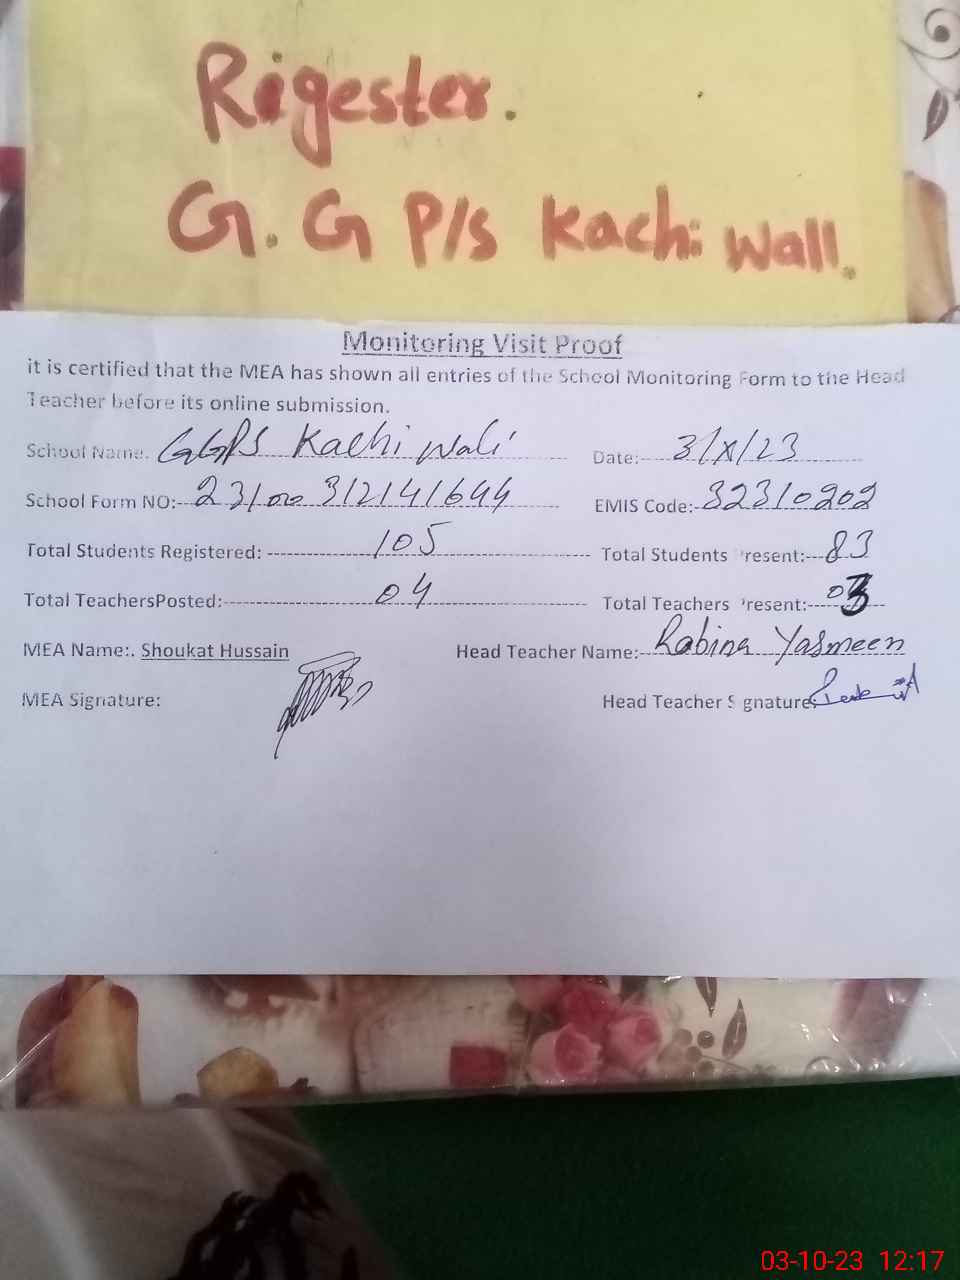 Rigester.
G. G P/S Kachi Wall.
Monitoring Visit Proof
it is certified that the MEA has shown all entries of the School Monitoring Form to the Head
Teacher before its online submission.
School Name. GGPS Kachi Wali Date: 3/X/23
School Form NO: 23100312141644 EMIS Code: 32310202
Total Students Registered: 105 Total Students Present: 83
Total TeachersPosted: 04 Total Teachers Present: 03
MEA Name:. Shoukat Hussain Head Teacher Name: Rabina Yasmeen
MEA Signature: Head Teacher Signature:
03-10-23 12:17